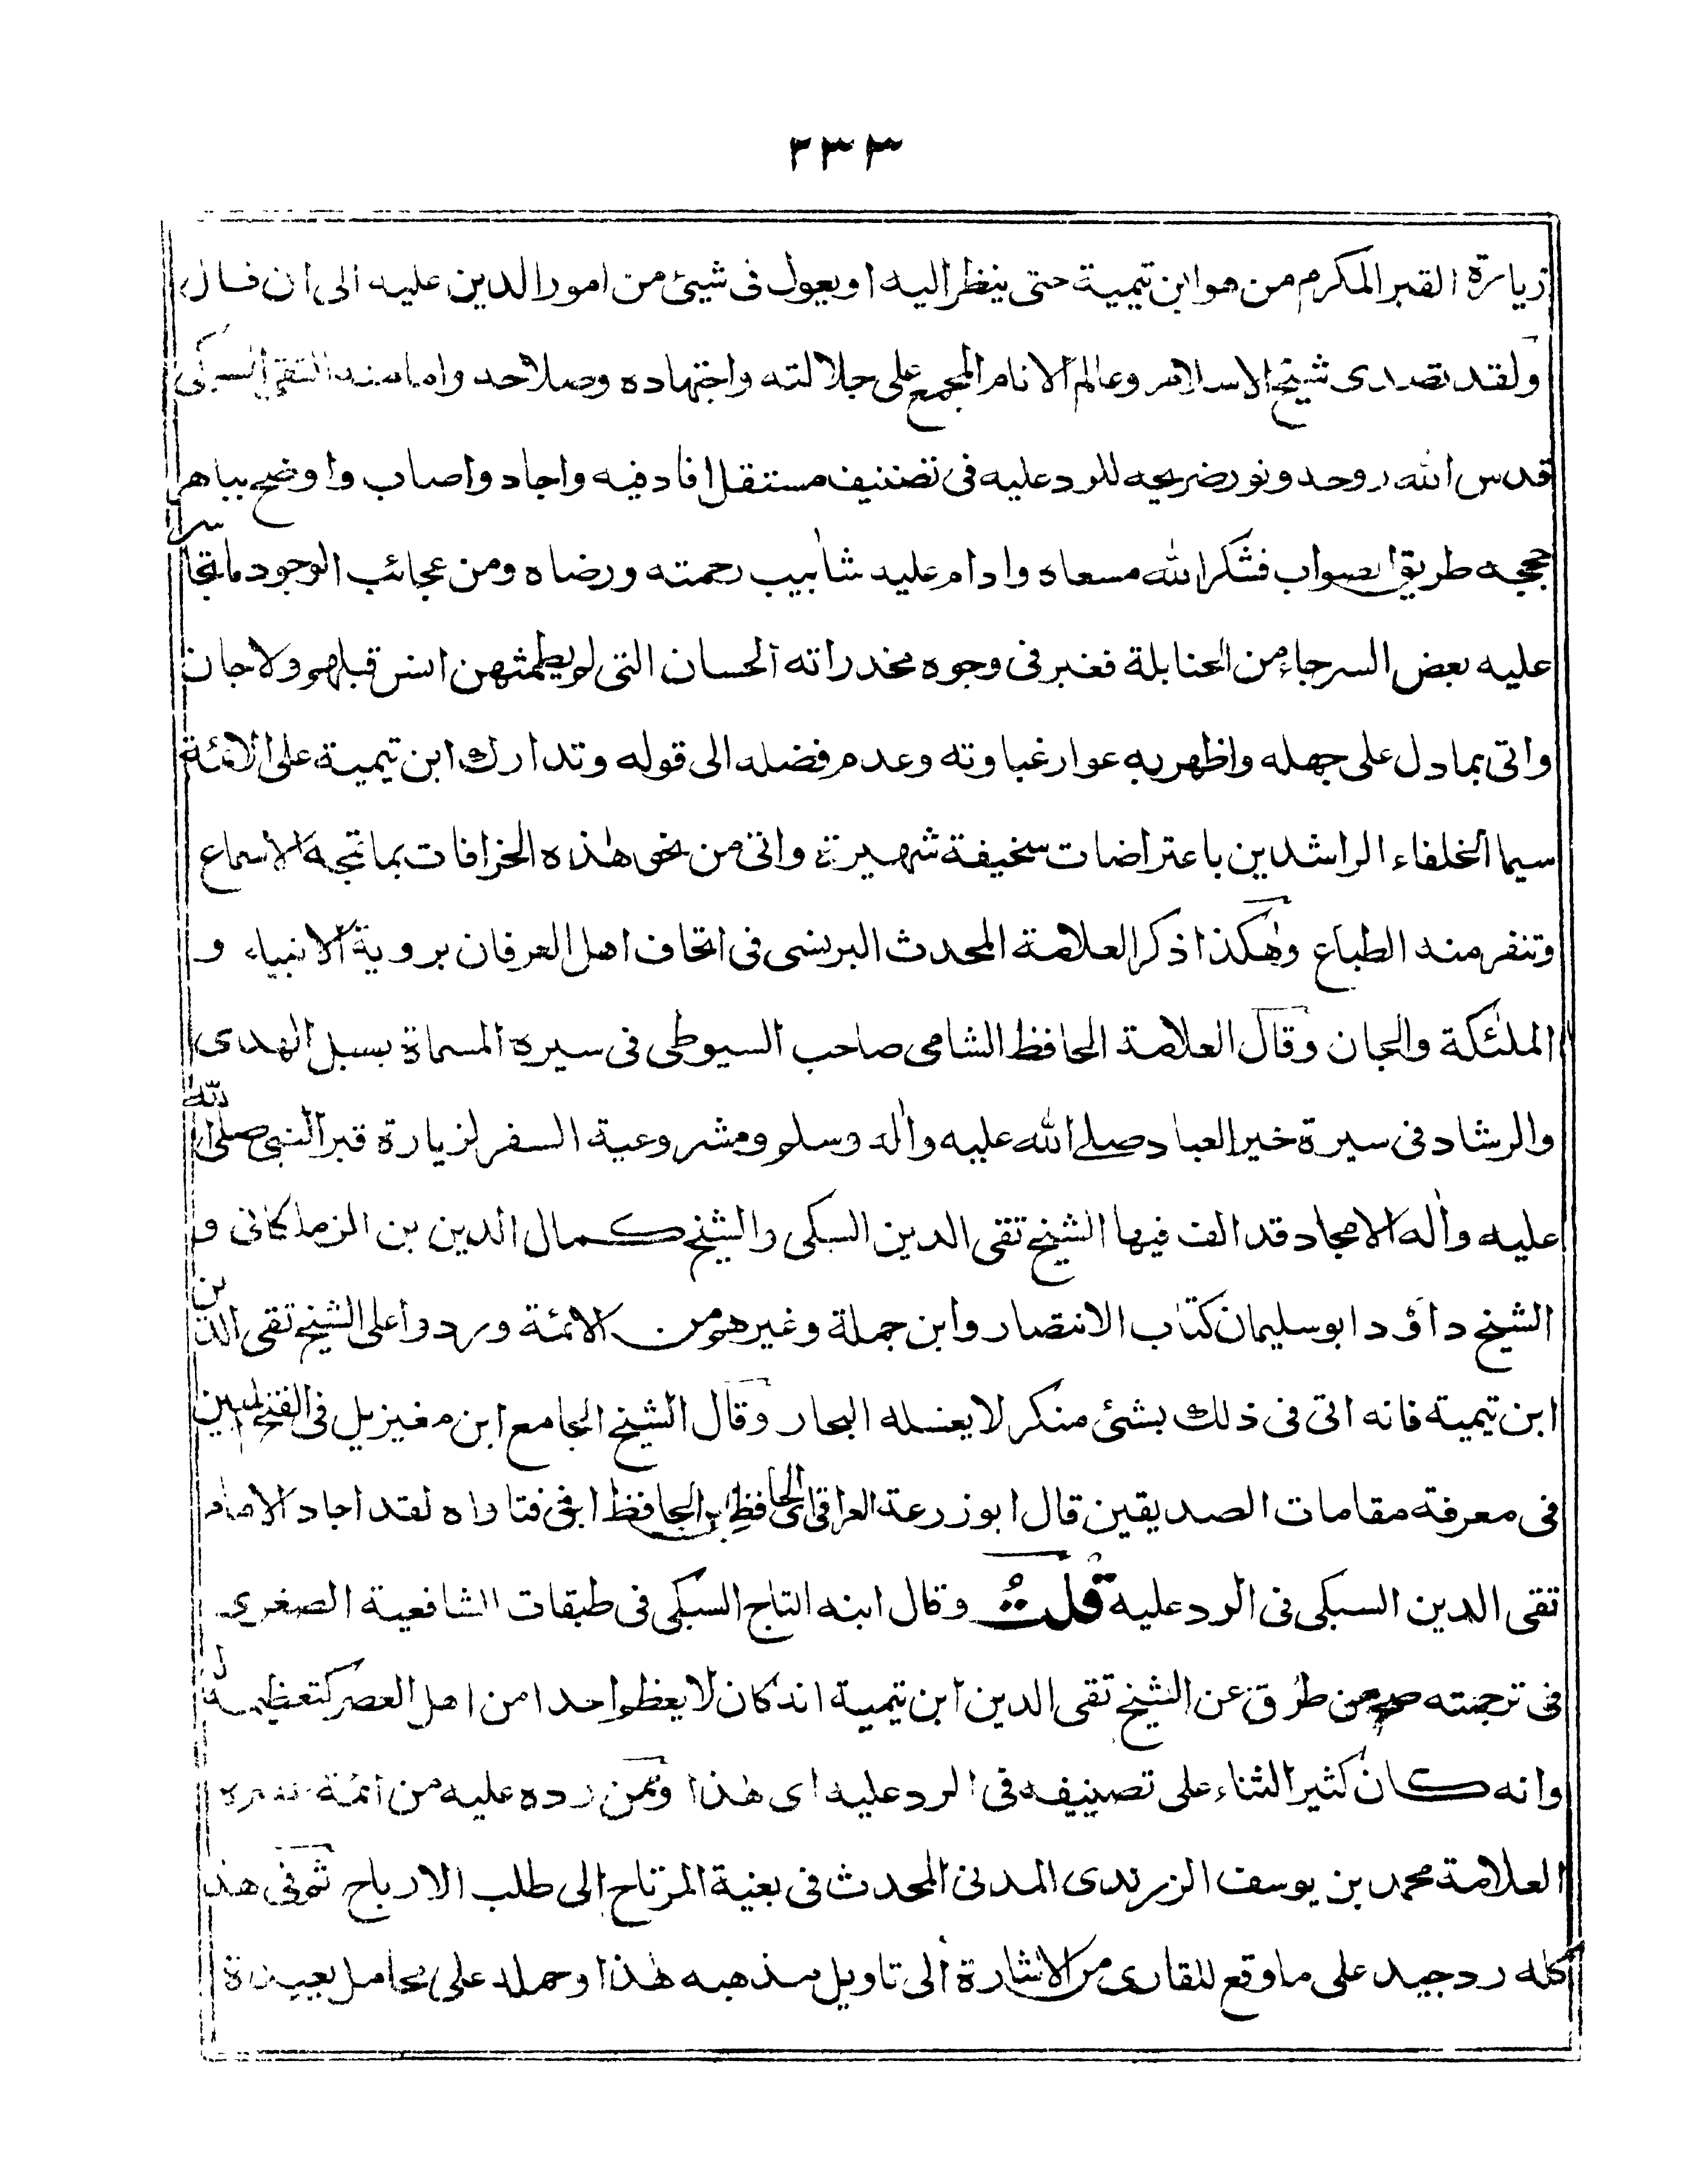 ٢٣٣
زيارة القبر المكرم من هو ابن تيمية حتى ينظر اليه او يعول فى شيئ من امور الدين عليه الى ان قال
ولقد تصدى شيخ الاسلام وعالم الانام المجمع على جلالته واجتهاده وصلاحه وامامته التقى السبكى
قدس الله روحه ونور ضريحه للرد عليه فى تصنيف مستقل افاد فيه واجاد واصاب واوضح بباهر
حججه طريق الصواب فشكر الله مسعاه وادام عليه شاٰبيب رحمته ورضاه ومن عجائب الوجود ما تجاسر
عليه بعض السرجاء من الحنابلة فغبر فى وجوه مخدراته الحسان التى لم يطمثهن انس قبلهم ولا جان
واتى بما دل على جهله واظهر به عوار غباوته وعدم فضله الى قوله وتدارك ابن تيمية على الائمة
سيما الخلفاء الراشدين باعتراضات سخيفة شهيرة واتى من نحو هٰذه الخزافات بما تمجه الاسماع
وتنفر منه الطباع وهٰكذا ذكر العلامة المحدث البرنسى فى اتحاف اهل العرفان بروية الانبياء و
الملٰئكة والجان وقال العلامة الحافظ الشامى صاحب السيوطى فى سيرة المسماة بسبل الهدى
والرشاد فى سيرة خير العباد صلے الله عليه واٰله وسلم ومشروعية السفر لزيارة قبر النبى صلى الله
عليه واٰله الامجاد قد الف فيها الشيخ تقى الدين السبكى والشيخ كمال الدين بن الزملكانى و
الشيخ داؤد ابو سليمان كتاب الانتصار وابن جملة وغيرهم من الائمة وردوا على الشيخ تقى الدين
ابن تيمية فانه اتى فى ذلك بشئ منكر لا يغسله البحار وقال الشيخ الجامع ابن مغيزيل فى الفتح المبين
فى معرفة مقامات الصديقين قال ابو زرعة العراقى اى الحافظ ابن الحافظ فى فتاواه لقد اجاد الامام
تقى الدين السبكى فى الرد عليه قلت وقال ابنه التاج السبكى فى طبقات الشافعية الصغرى
فى ترجمته صح من طرق عن الشيخ تقى الدين ابن تيمية انه كان لا يعظم احدا من اهل العصر كتعظيمه له
وانه كان كثير الثناء على تصنيفه فى الرد عليه اى هٰذا وممن رده عليه من ائمة
العلامة محمد بن يوسف الزرندى المدنى المحدث فى بغية المرتاح الى طلب الارباح ثم فى هذا
كله رد جيد على ما وقع للقارى من الاشارة الى تاويل مذهبه هٰذا وحمله على محامل بعيدة